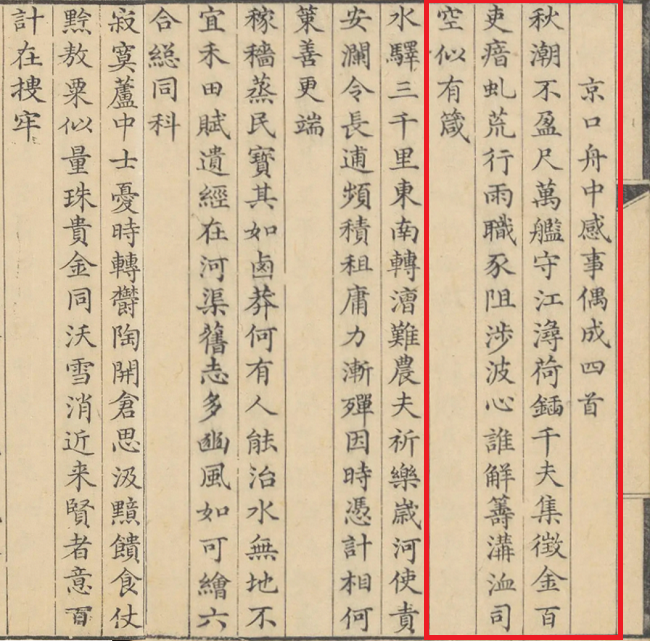 京口舟中感事偶成四首
秋潮不盈尺萬艦守江潯荷鍤千夫集徵金百
吏瘖虬荒行雨職豕阻涉波心誰解籌溝洫司
空似有箴
水驛三千里東南轉漕難農夫祈樂歲河使責
安瀾令長逋頻積租庸力漸殫因時憑計相何
策善更端
稼穡蒸民寶其如鹵莽何有人能治水無地不
宜禾田賦遺經在河渠舊志多豳風如可繪六
合緫同科
寂寞蘆中士憂時轉鬱陶開倉思汲黯饋食仗
黔敖粟似量珠貴金同沃雪消近来賢者意百
計在摟牢